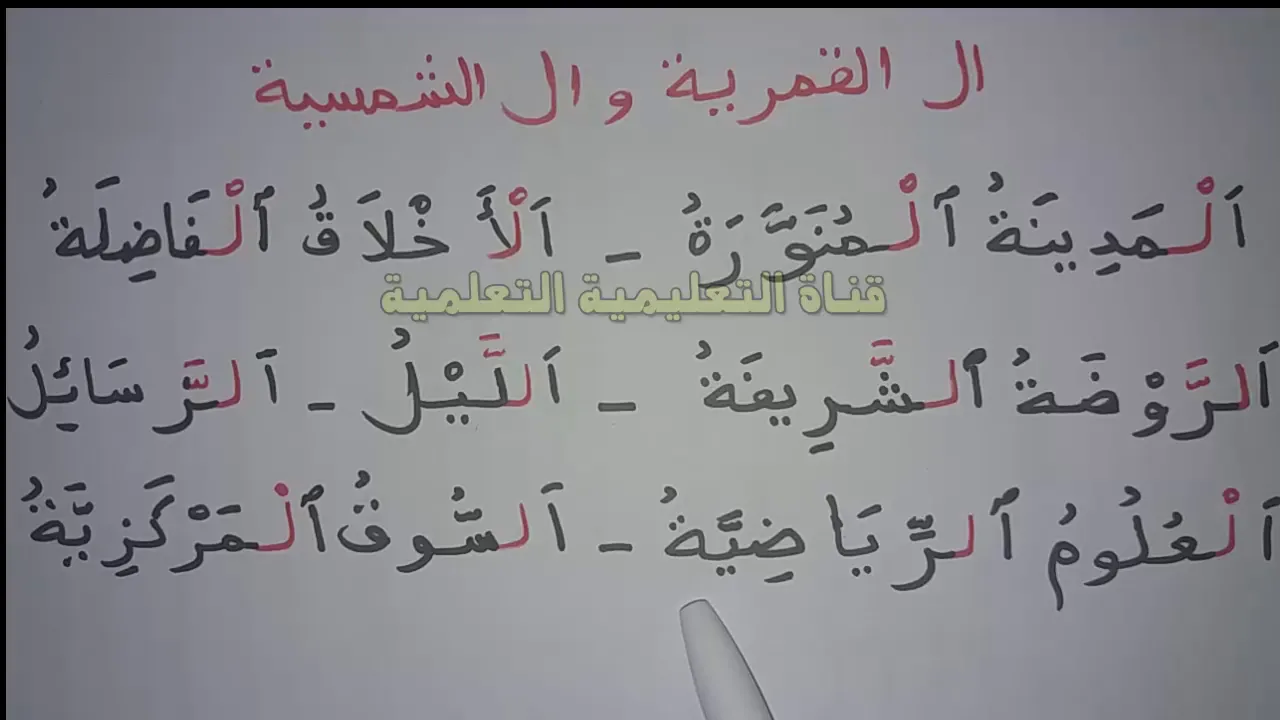 ال القمرية و ال الشمسية
اَلْمَدِينَةُ ٱلْمُنَوَّرَةُ - اَلْأَخْلَاقُ ٱلْفَاضِلَةُ
قناة التعليمية التعلمية
اَلرَّوْضَةُ ٱلشَّرِيفَةُ - اَللَّيْلُ - ٱلرَّسَائِلُ
اَلْعُلُومُ ٱلرِّيَاضِيَّةُ - اَلسُّوقُ ٱلْمَرْكَزِيَّةُ